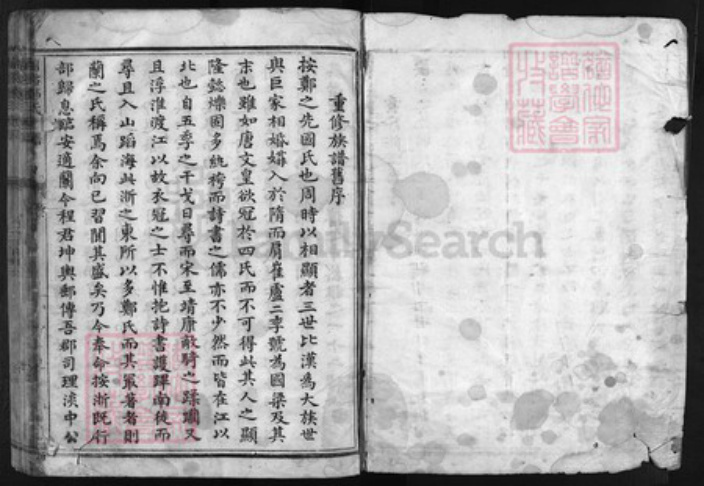 重修族譜舊序
按鄭之先國氏也周時以相顯者三世比漢為大族世
與巨家相婚媾入於隋而肩崔盧二李號為國梁及其
末也雖如唐文皇欲冠於四氏而不可得此其人之顯
隆懿爍固多紈袴而詩書之儒亦不少然而皆在江以
北也自五季之干戈日尋而宋至靖康敵騎之蹂躪又
且浮淮渡江以故衣冠之士不惟抱詩書護譜南徙而
尋且入山蹈海此浙之東所以多鄭氏而其最著者則
蘭之氏稱焉余向已習聞其盛矣乃今奉命按浙既行
部歸息臨安適關令程君坤輿郵傳吾郡司理淡中公
FamilySearch